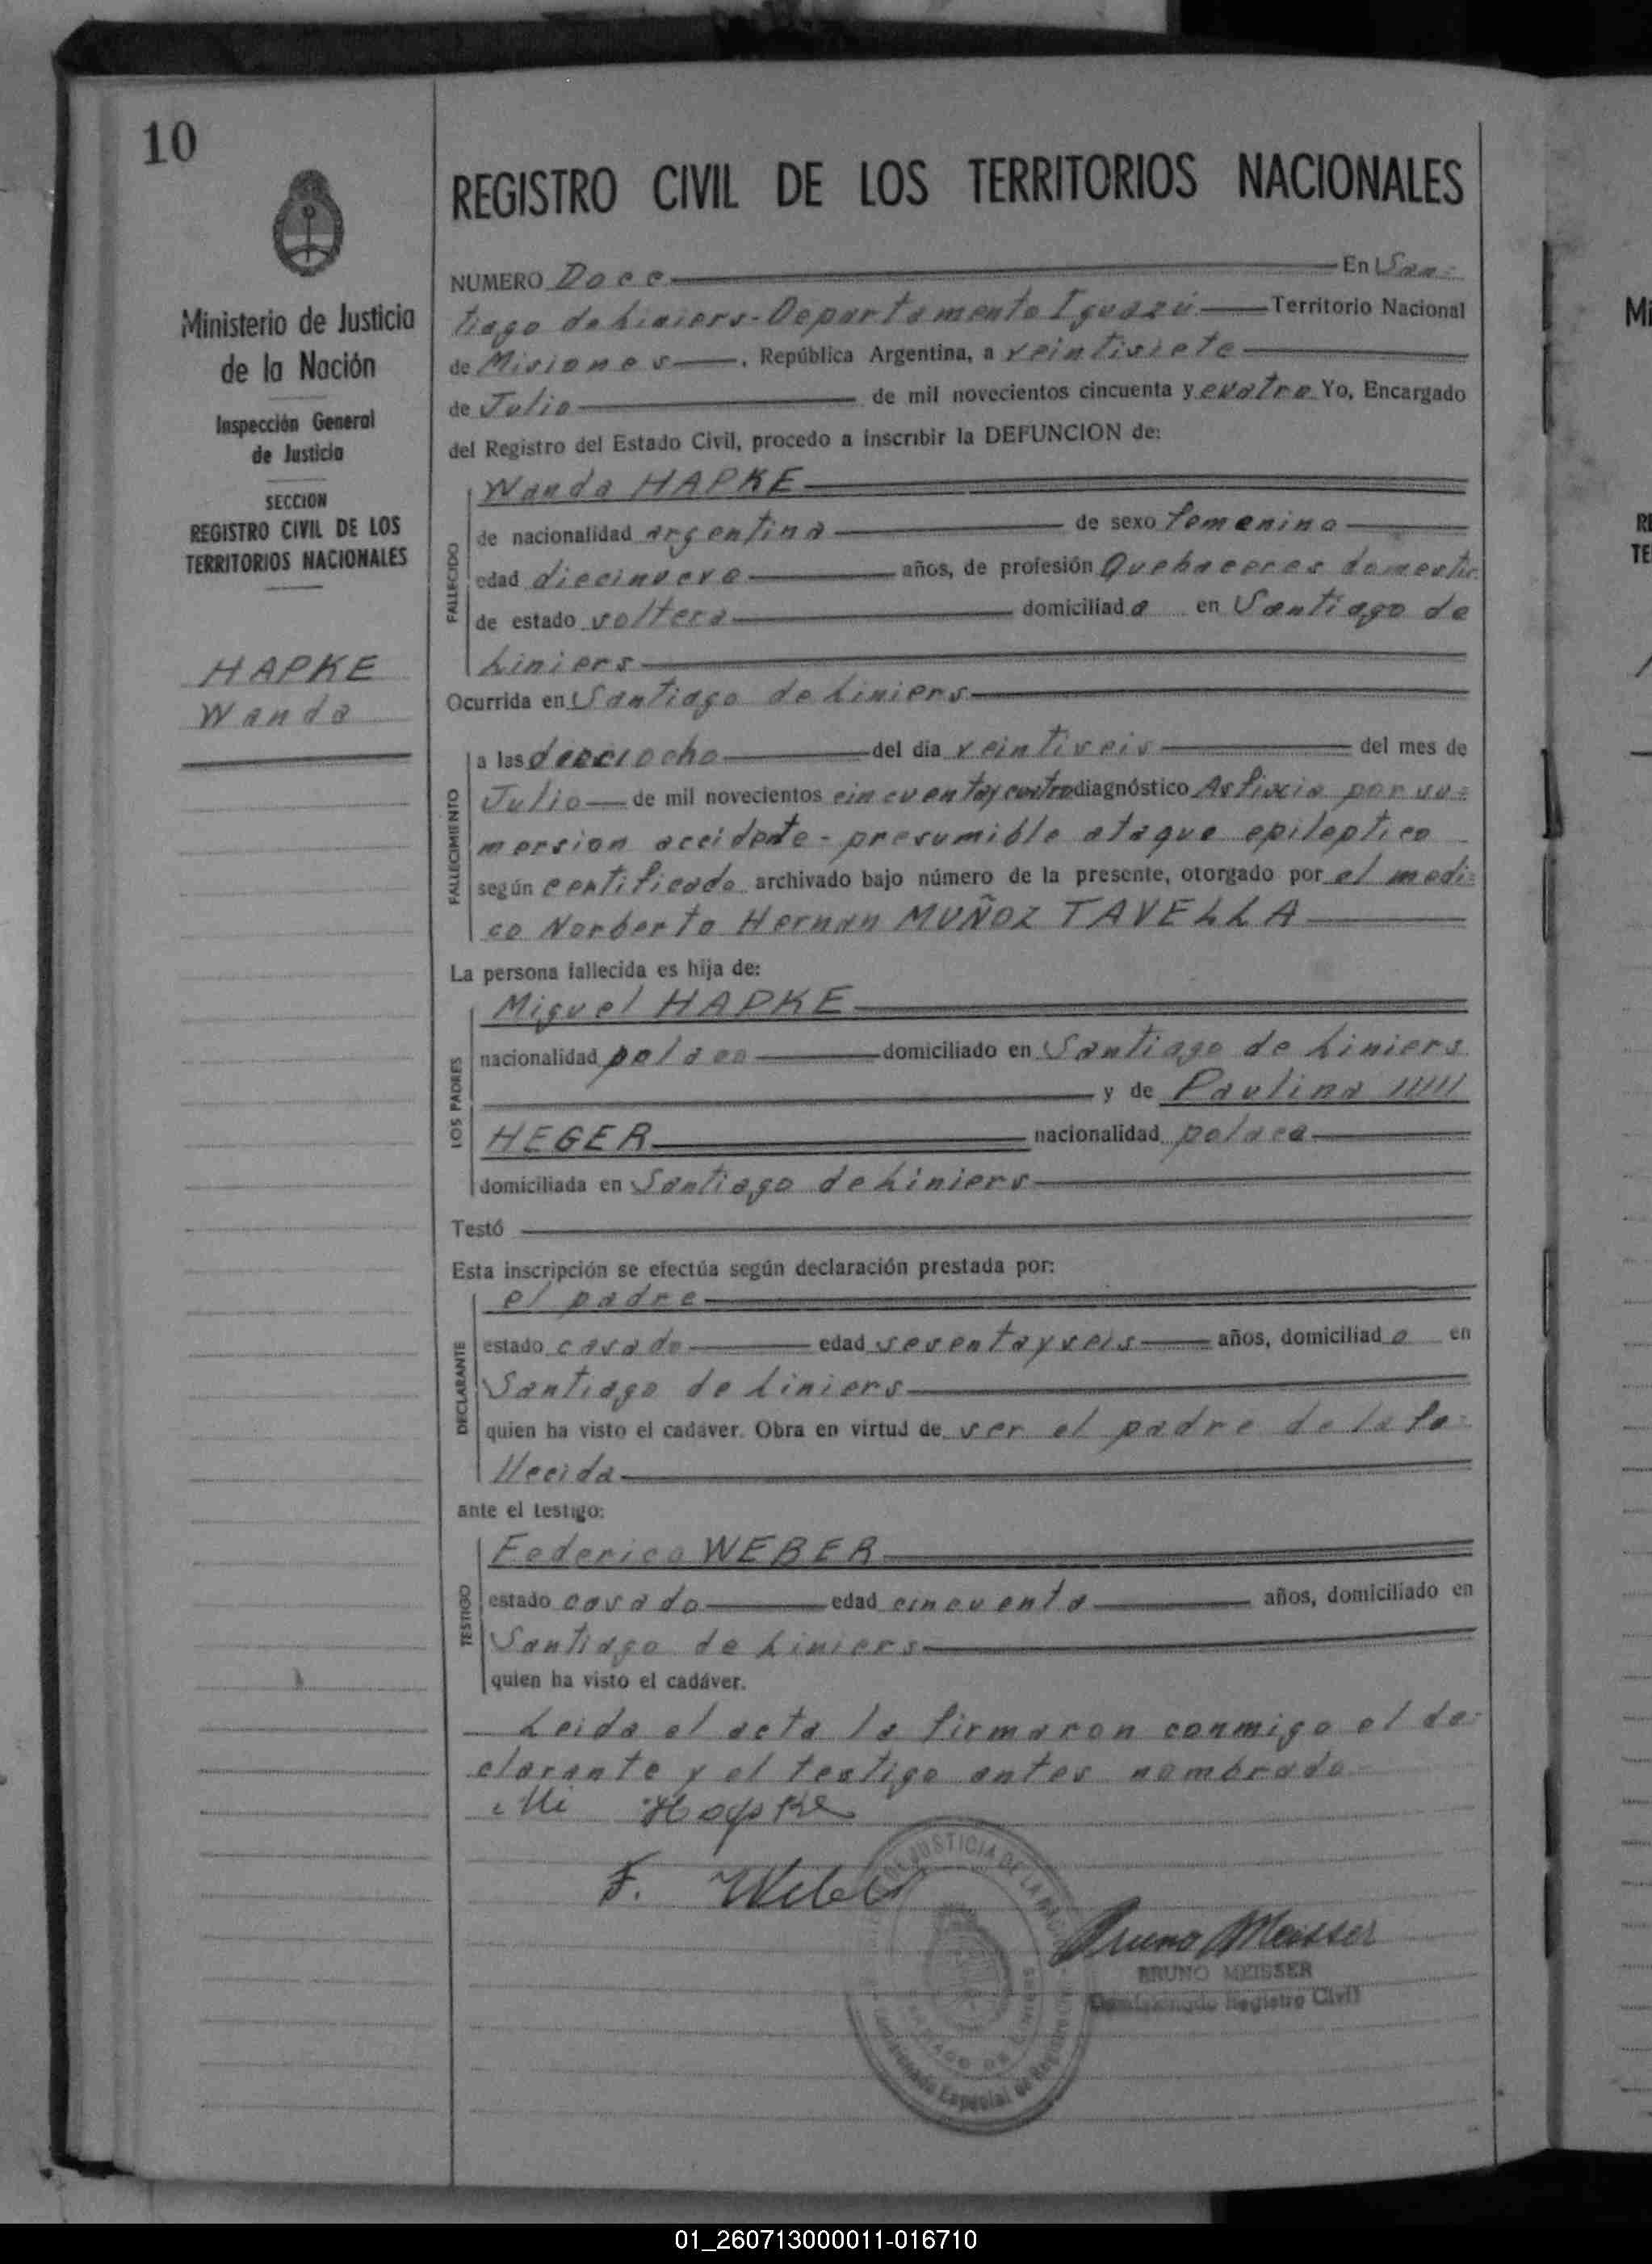 10
Ministerio de Justicia
de la Nación
Inspección General
de Justicia
SECCION
REGISTRO CIVIL DE LOS
TERRITORIOS NACIONALES
HAPKE
Wanda
REGISTRO CIVIL DE LOS TERRITORIOS NACIONALES
NUMERO Doce En San=
tiago de Liniers-Departamento Iguazú Territorio Nacional
de Misiones, República Argentina, a veintisiete
de Julio de mil novecientos cincuenta y cuatro Yo, Encargado
del Registro del Estado Civil, procedo a inscribir la DEFUNCION de:
FALLECIDO
Wanda HAPKE
de nacionalidad argentina de sexo femenino
edad diecinueve años, de profesión Quehaceres domestic
de estado soltera domiciliada en Santiago de
Liniers
Ocurrida en Santiago de Liniers
FALLECIMIENTO
a las dieciocho del día veintiseis del mes de
Julio de mil novecientos cincuenta y cuatro diagnóstico Asfixia por su=
mersion accidente - presumible ataque epileptico
según certificado archivado bajo número de la presente, otorgado por el medi=
co Norberto Hernan MUÑOZ TAVELLA
La persona fallecida es hija de:
LOS PADRES
Miguel HAPKE
nacionalidad polaco domiciliado en Santiago de Liniers
y de Paulina
HEGER nacionalidad polaca
domiciliada en Santiago de Liniers
Testó
Esta inscripción se efectúa según declaración prestada por:
DECLARANTE
el padre
estado casado edad sesentayseis años, domiciliado en
Santiago de Liniers
quien ha visto el cadáver. Obra en virtud de ser el padre de la fa=
llecida
ante el testigo:
TESTIGO
Federico WEBER
estado casado edad cincuenta años, domiciliado en
Santiago de Liniers
quien ha visto el cadáver.
Leida el acta la firmaron conmigo el de=
clarante y el testigo antes nombrado
Mi Hapke
F. Weber
Bruno Meisser
BRUNO MEISSER
Registro Civil
JUSTICIA DE LA
SANTIAGO DE LINIERS
Especial de Registro
Mi
RE
TE
01_260713000011-016710